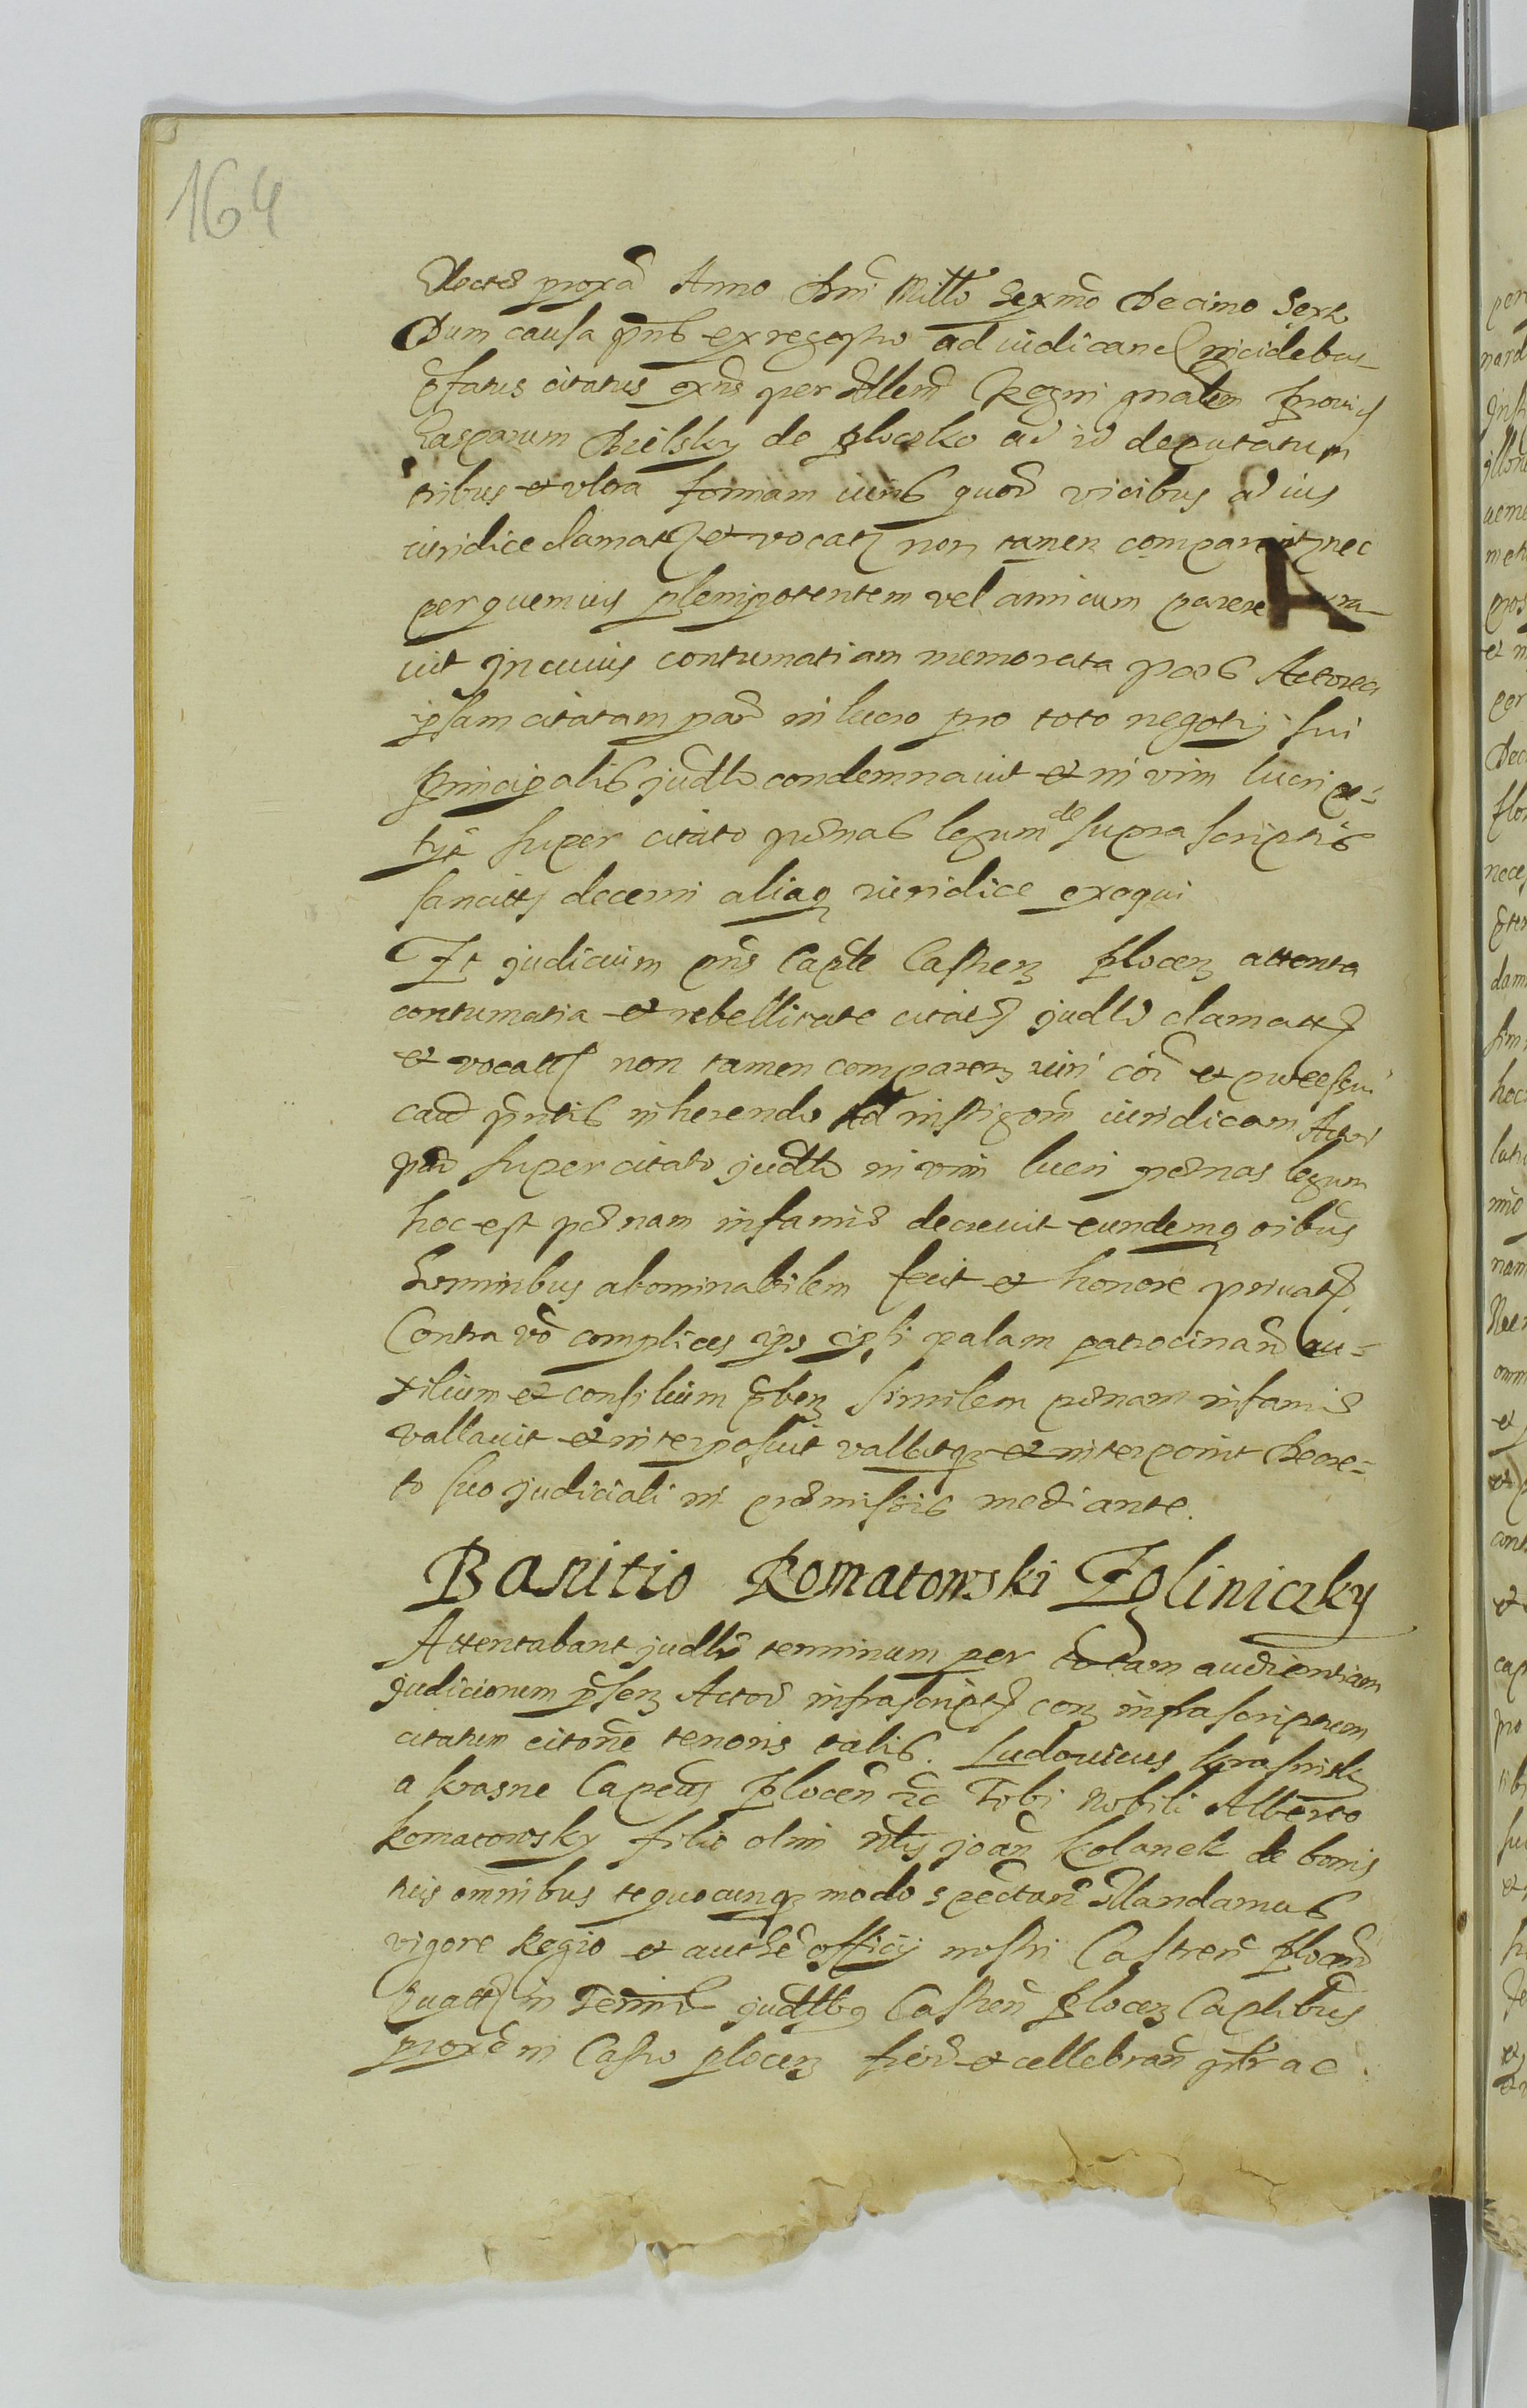 164
proxã Anno Dni Millo Sexmo Decimo Sexto
Dum causa pns ex regestro ad iudicand incidebat
pfatus citatus exns per Mlem Regni gnalem
Casparum Bielsky de Plocko ad id deputatum
tribus et vltra formam iuris quor vicibus ad ius
iuridice clamatg et vocatg non tamen comparuit nec
per quemuis plenipotentem vel amicum parere cura-
uit In cuius contumatiam memorata pars Actorea
ipsam citatam par in lucro pro toto negotij sui
principalis judlr condemnauit et in vim lucri pe-
tijt super citato pænas legum de supra scriptis
sancitg decerni aliaq iuridice exequi
Et judicium pns Caple Castren Plocen attenta
contumatia et rebellitate citati judlr clamatt
et vocatt non tamen comparen iuri coi et processui
caus pntis inherendo Ad instigom iuridicam Actor
par super citato judlr in vim lucri pænas legum
hoc est pænam infamiæ decreuit eundemq oibus
hominibus abominabilem fecit et honore priuat
Contra vo complices ips ipsi palam patrocinan au-
xilium et consilium pben similem pænam infamiæ
vallauit et interposuit vallatq et interponit Decre-
to suo judiciali in præmissis mediante.
Banitio Komatowski Zgliniczky
Attentabant judlr terminum per totam audientiam
Judiciorum psen Actor infrascript con infrascriptum
citatum citone tenoris talis. Ludouicus Krasinsky
a Krasne Capeus Plocen etc Tibi Nobili Alberto
Komatowsky filio olim Nlis Joan Kolanek de bonis
tuis omnibus tequocunq modo spectan Mandamus
vigore Regio et authe officij nostri Castren Plocen
in Termi judlbg Castren Plocen Caplibus
proxe in Castro plocen fien et cellebran